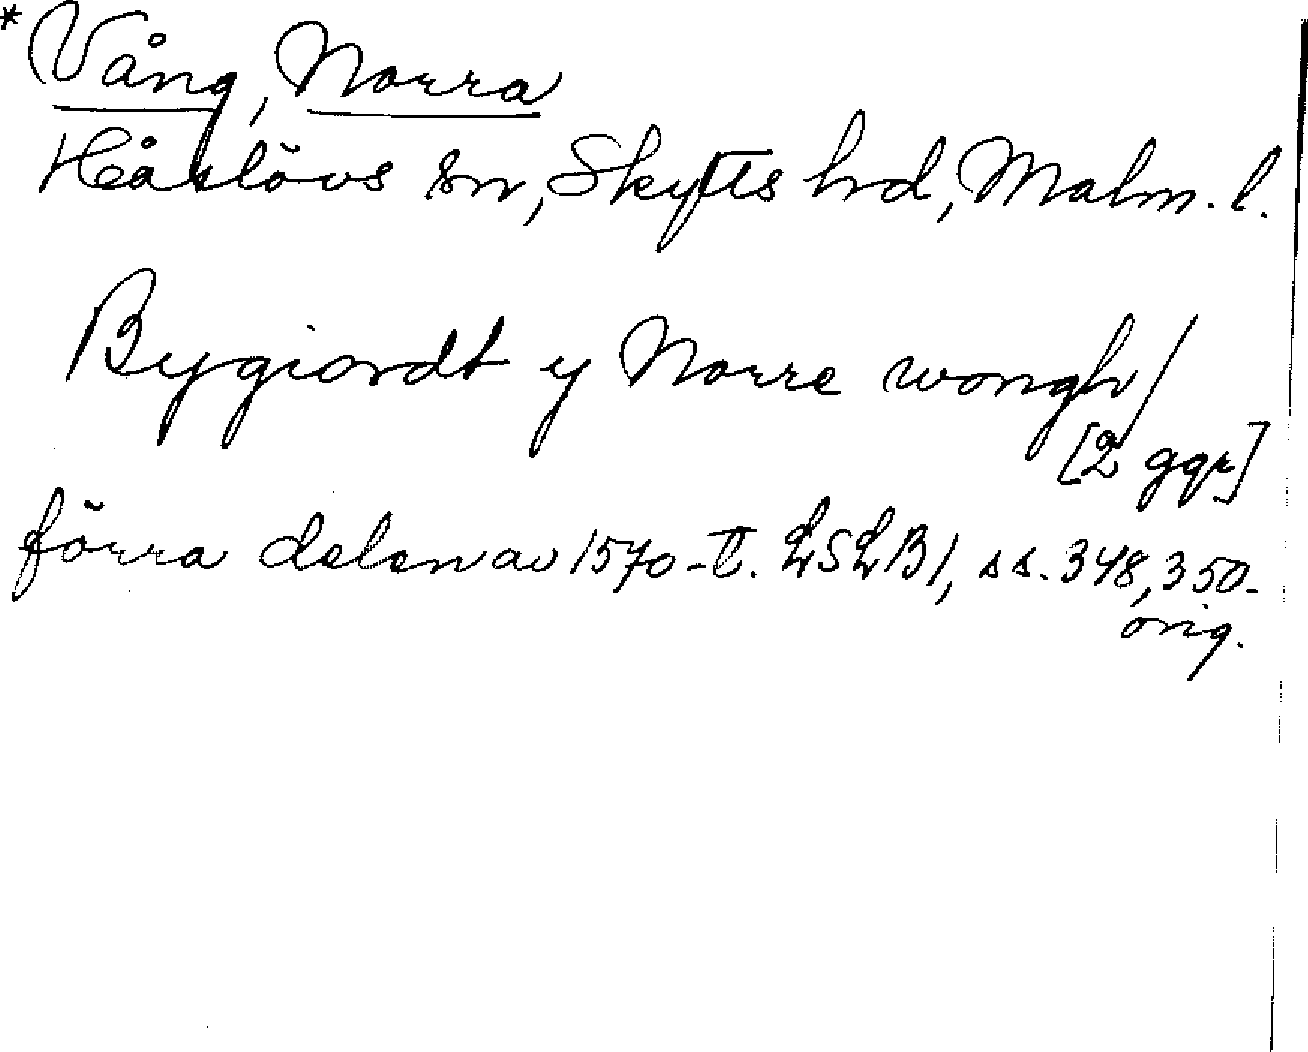 *Vång, Norra
Håslövs sn, Skytts hd, Malm. l.
Bygiordt y Norre wongh/
[2 ggr]
förra delen av 1570-t. LSLB1, ss. 348, 350-
orig.